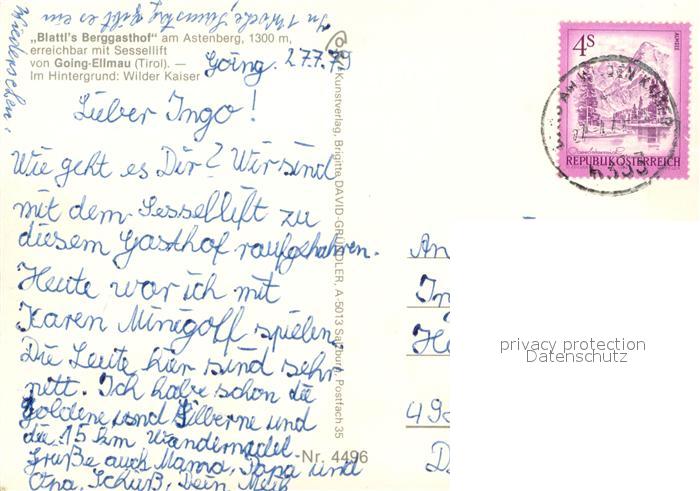 „Blattl's Berggasthof" am Astenberg, 1300 m,
erreichbar mit Sessellift
von Going-Ellmau (Tirol). —
Im Hintergrund: Wilder Kaiser
Going. 27.7.79
Lieber Ingo!
Wie geht es Dir? Wir sind
mit dem Sessellift zu
diesem Gasthof raufgefahren.
Heute war ich mit
Karen Minigolf spielen
Die Leute hier sind sehr
nett. Ich habe schon die
goldene und Silberne und
die 15 km Wandernadel.
Grüße auch Mama, Papa und
Opa. Tschüß, Dein
In 1 Woche Samstag gibt es ein
Wiedersehen.
Kunstverlag, Brigitte DAVID-GRÜNDLER, A-5013 Salzburg, Postfach 35
Nr. 4496
4S
ALMSEE
REPUBLIK ÖSTERREICH
6353
An
In
He
49
D
privacy protection
Datenschutz